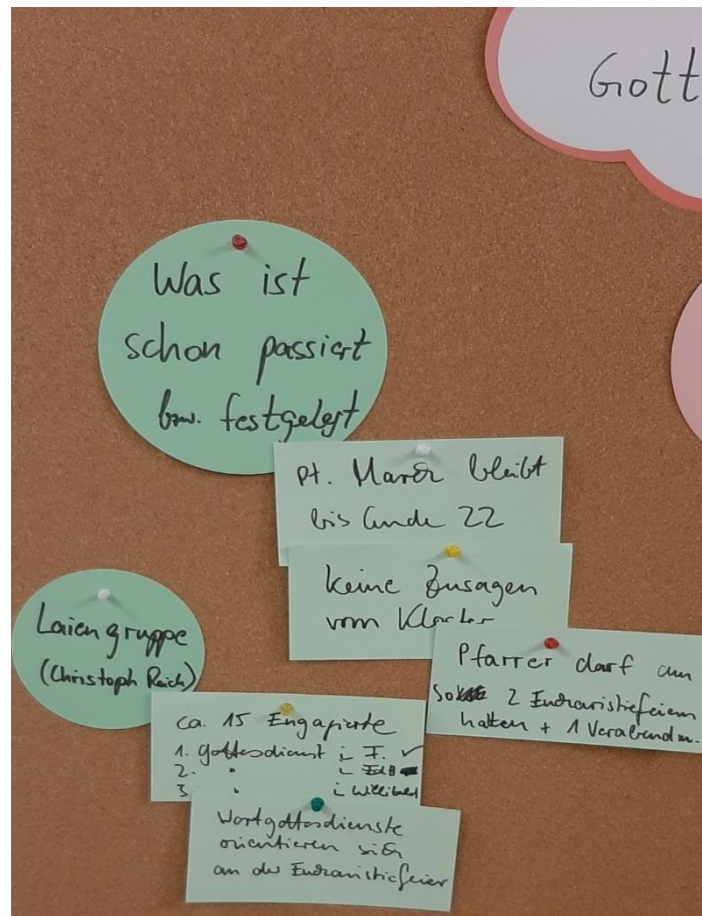 Gott
Was ist
schon passiert
bzw. festgelegt
bleibt
bis Ende 22
keine Zusagen
vom Kloster
Laiengruppe
(Christoph Reich)
Pfarrer darf am
2 Eucharistiefeiern
halten + 1 Vorabendm.
ca. 15 Engagierte
1. Gottesdienst i F. ✓
2. " i
3. " i Willibald
Wortgottesdienste
orientieren sich
an der Eucharistiefeier